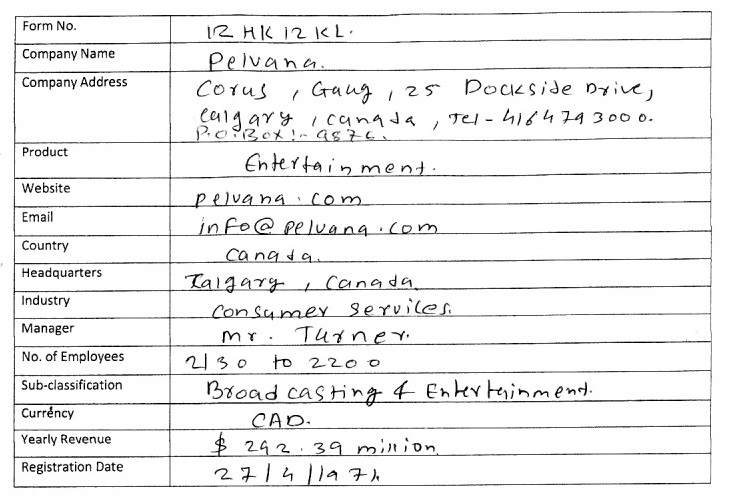 Form No. 12 HK 12 KL.
Company Name Pelvana.
Company Address Corus, Gaug, 25 Dockside Drive,
Calgary, Canada, Tel - 4164793000.
P.O.Box:- 9876.
Product Entertainment.
Website pelvana.com
Email info@pelvana.com
Country Canada.
Headquarters Calgary, Canada.
Industry Consumer Services.
Manager Mr. Turner.
No. of Employees 2130 to 2200
Sub-classification Broadcasting & Entertainment.
Currency CAD.
Yearly Revenue $ 292.39 million
Registration Date 27/4/1974